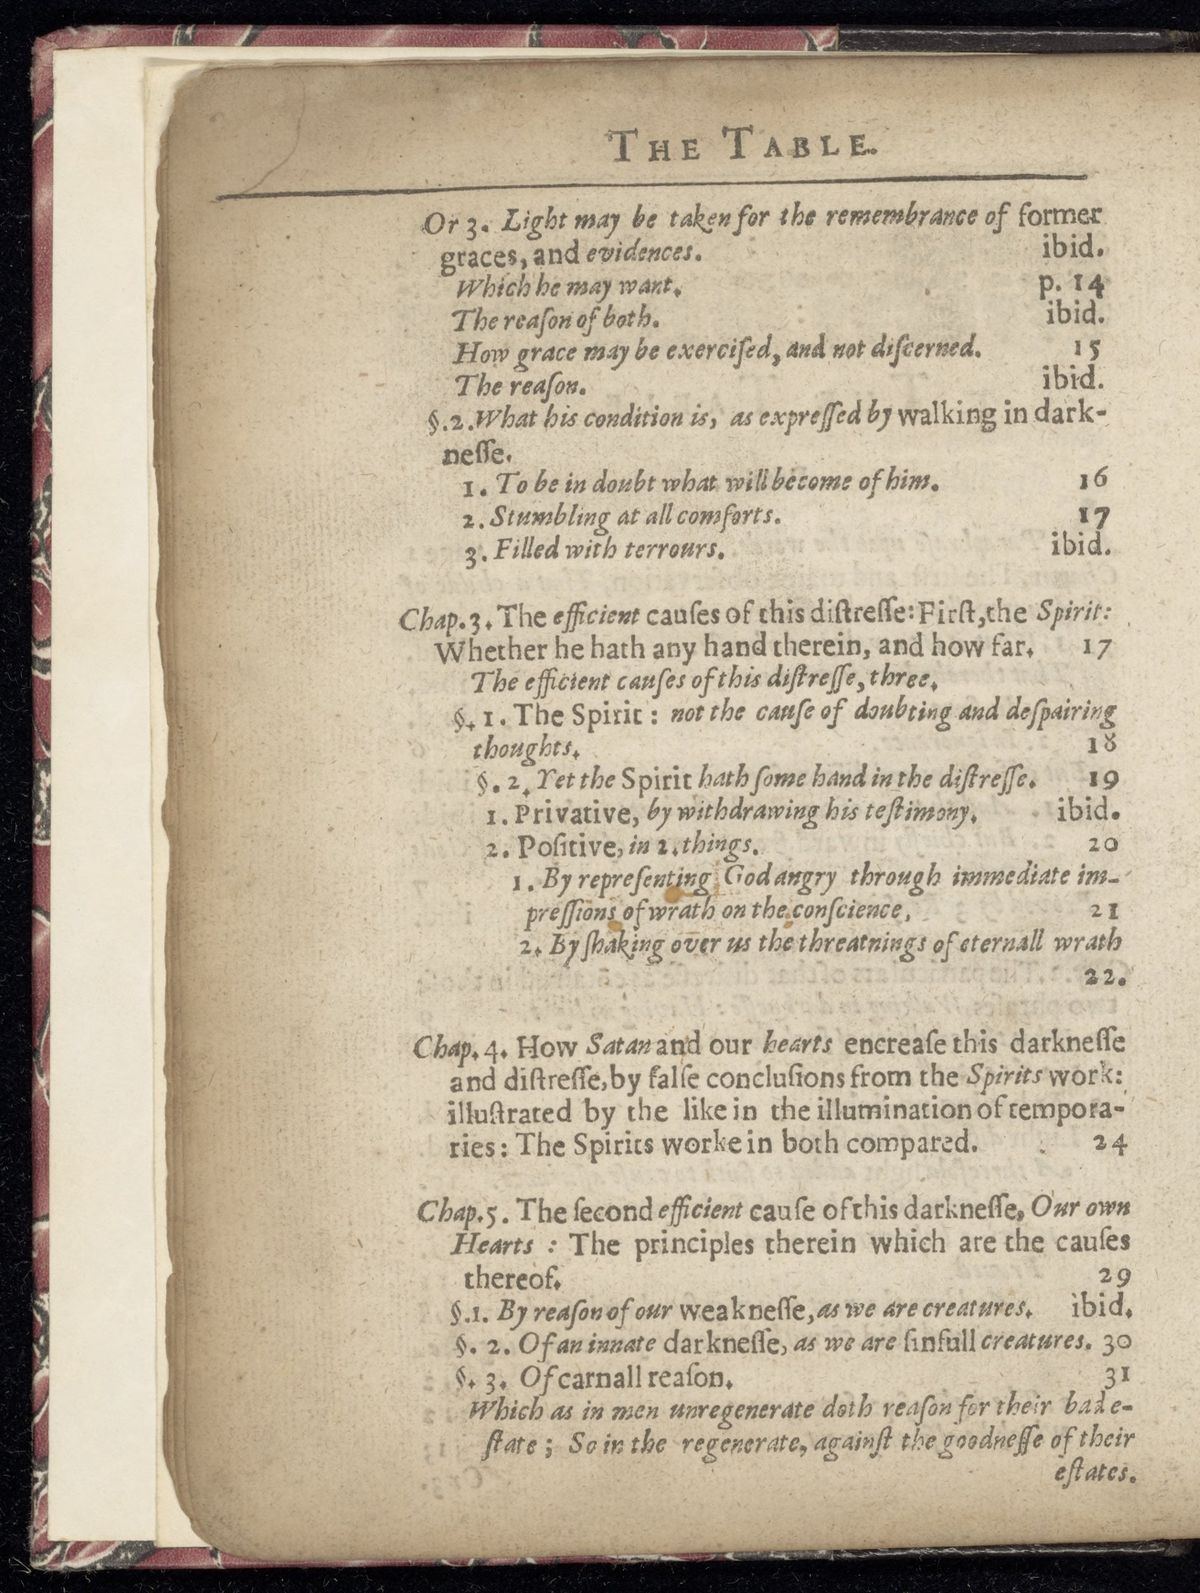 THE TABLE.
Or 3. Light may be taken for the remembrance of former
graces, and evidences. ibid.
Which he may want. p. 14
The reaſon of both. ibid.
How grace may be exerciſed, and not diſcerned. 15
The reaſon. ibid.
§.2. What his condition is, as expreſſed by walking in dark-
neſſe.
1. To be in doubt what will become of him. 16
2. Stumbling at all comforts. 17
3. Filled with terrours. ibid.
Chap.3. The efficient cauſes of this diſtreſſe: Firſt, the Spirit:
Whether he hath any hand therein, and how far. 17
The efficient cauſes of this diſtreſſe, three.
§. 1. The Spirit: not the cauſe of doubting and deſpairing
thoughts. 18
§. 2. Yet the Spirit hath ſome hand in the diſtreſſe. 19
1. Privative, by withdrawing his teſtimony. ibid.
2. Poſitive, in 2. things. 20
1. By repreſenting God angry through immediate im-
preſſions of wrath on the conſcience, 21
2. By ſhaking over us the threatnings of eternall wrath
22.
Chap. 4. How Satan and our hearts encreaſe this darkneſſe
and diſtreſſe, by falſe concluſions from the Spirits work:
illuſtrated by the like in the illumination of tempora-
ries: The Spirits worke in both compared. 24
Chap.5. The ſecond efficient cauſe of this darkneſſe, Our own
Hearts : The principles therein which are the cauſes
thereof. 29
§.1. By reaſon of our weakneſſe, as we are creatures. ibid.
§. 2. Of an innate darkneſſe, as we are ſinfull creatures. 30
§. 3. Of carnall reaſon. 31
Which as in men unregenerate doth reaſon for their bad e-
ſtate ; So in the regenerate, againſt the goodneſſe of their
eſtates.